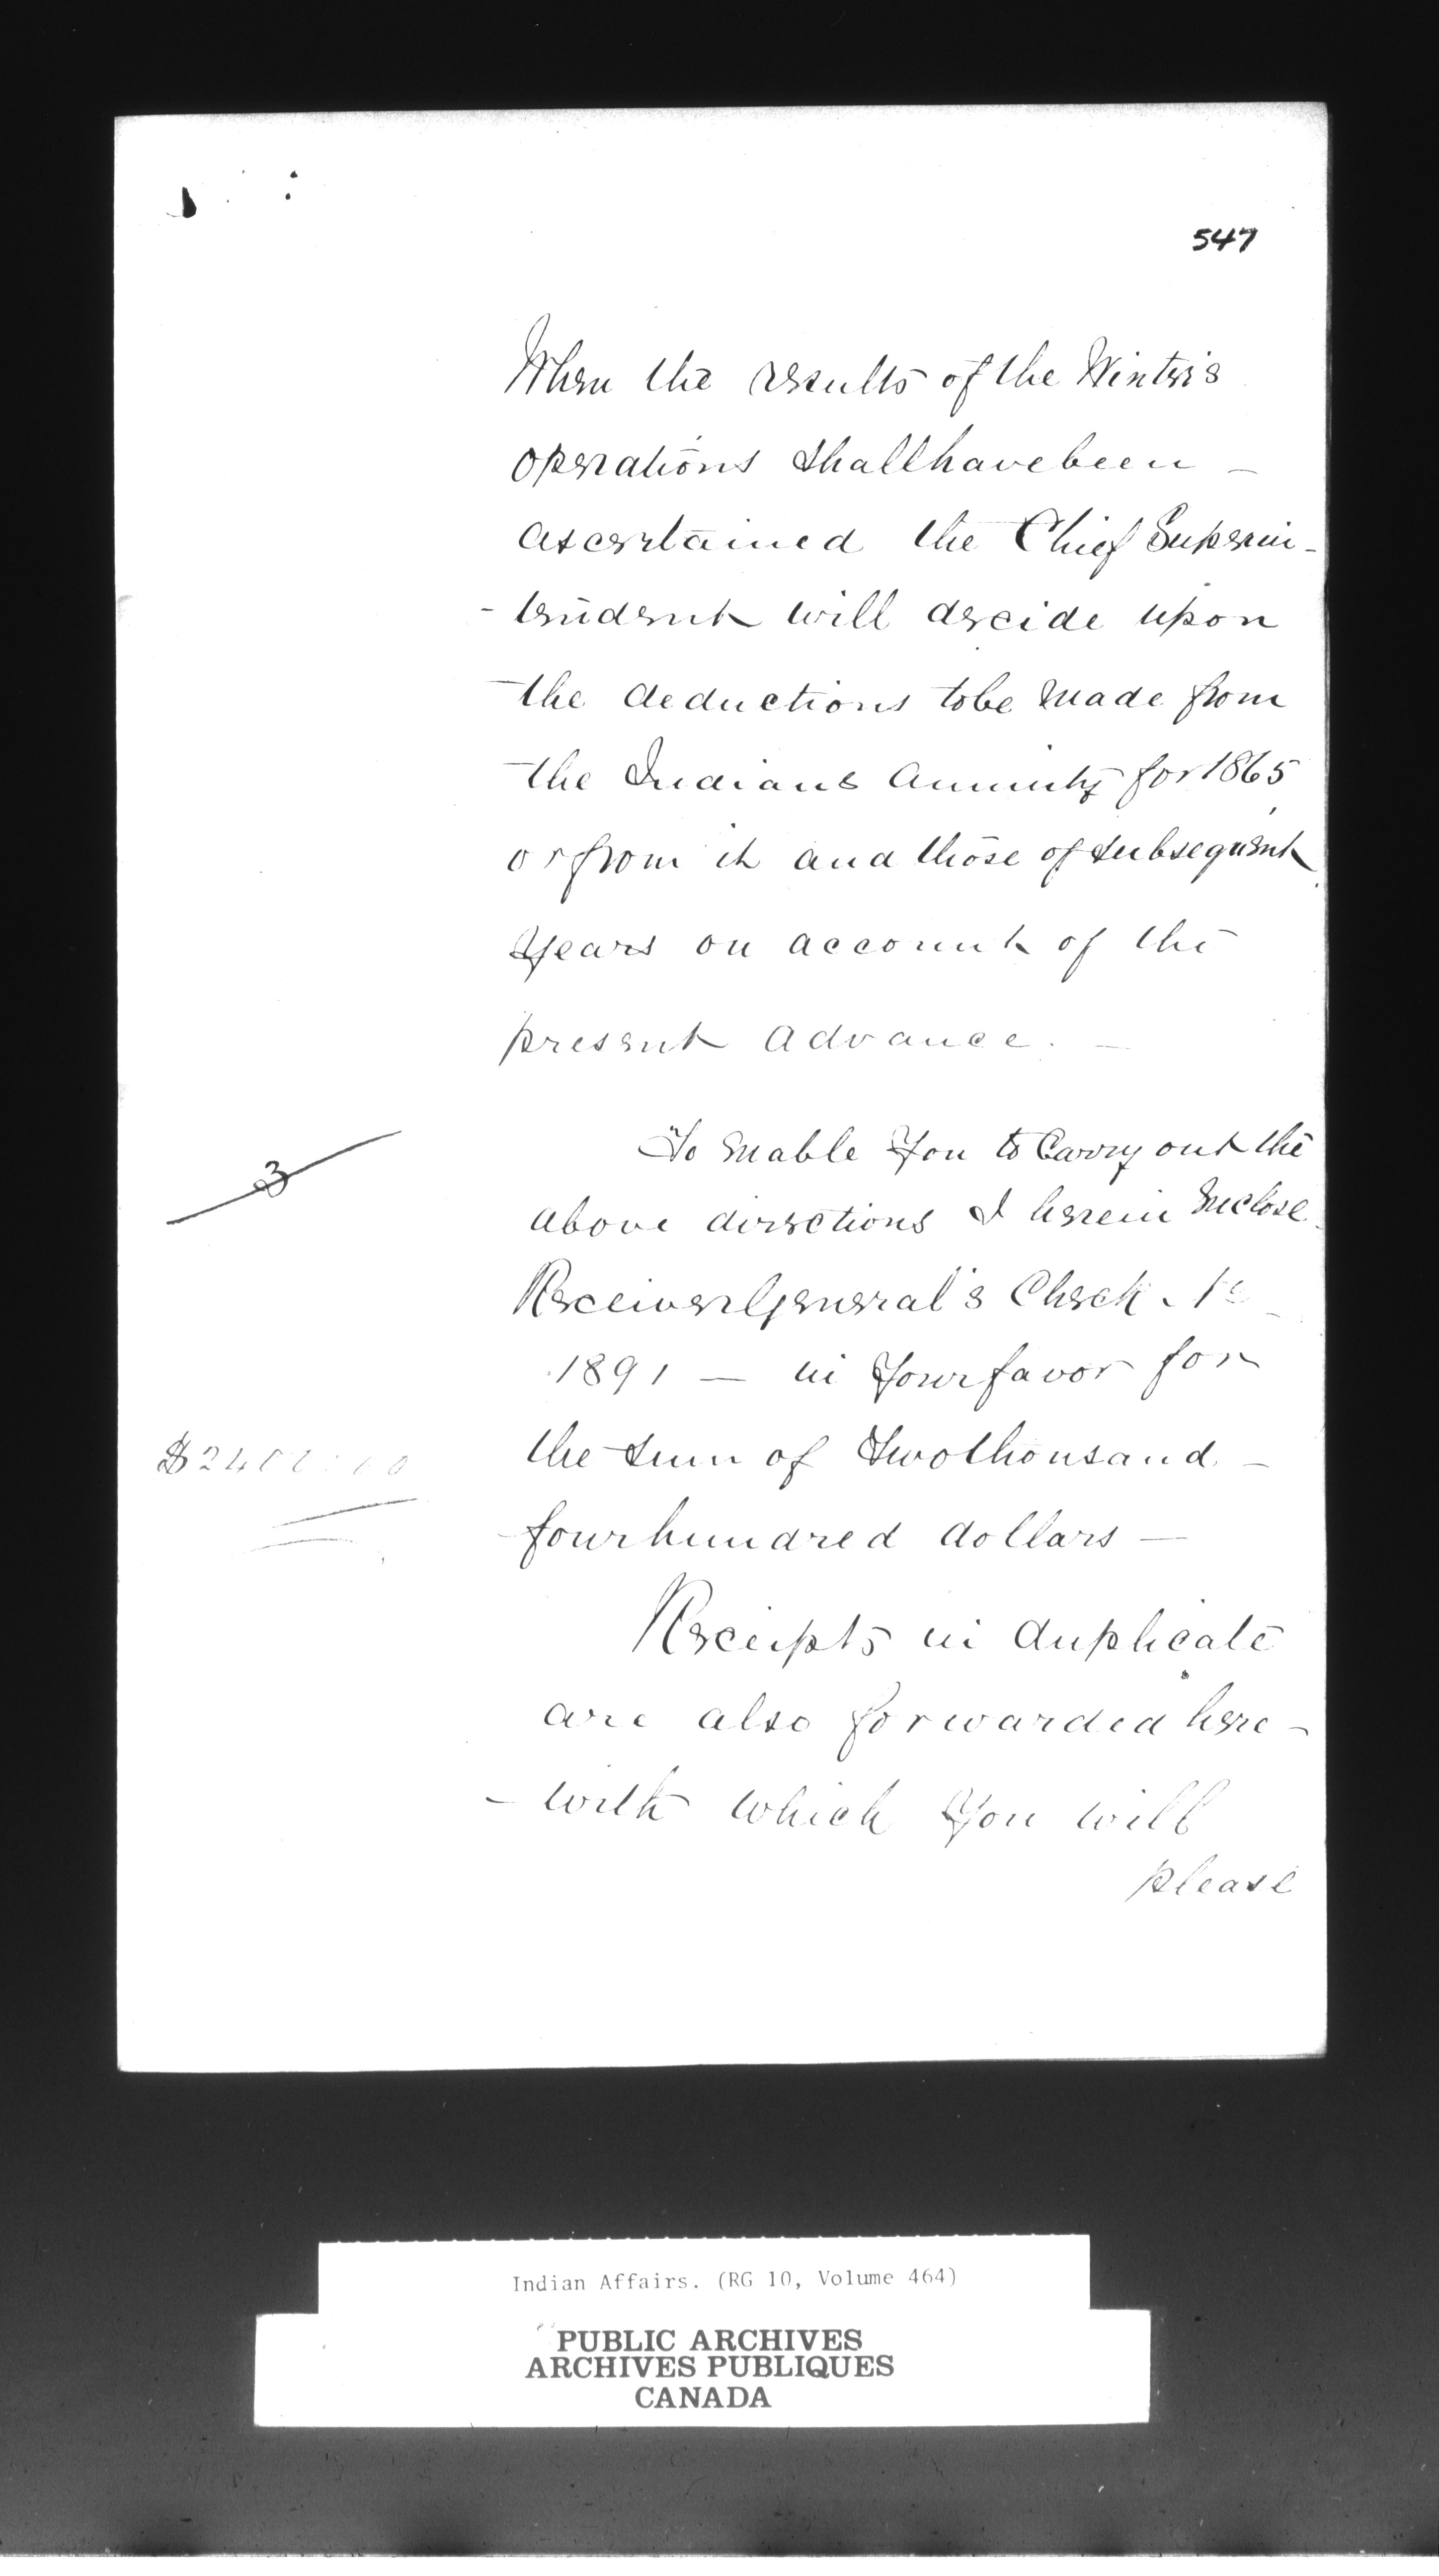 547
When the results of the Winter's
operations shall have been -
ascertained the Chief Superin-
- tendent will decide upon
the deductions to be made from
the Indians annuity for 1865
or from it and those of subsequent
Years on account of the
present advance. -
3
To enable You to Carry out the
above directions I herein enclose
Receiver General's Check No
1891 - in Your favor for
$2400.00
the sum of Two thousand -
four hundred dollars -
Receipts in duplicate
are also forwarded here -
- with which You will
please
Indian Affairs. (RG 10, Volume 464)
PUBLIC ARCHIVES
ARCHIVES PUBLIQUES
CANADA